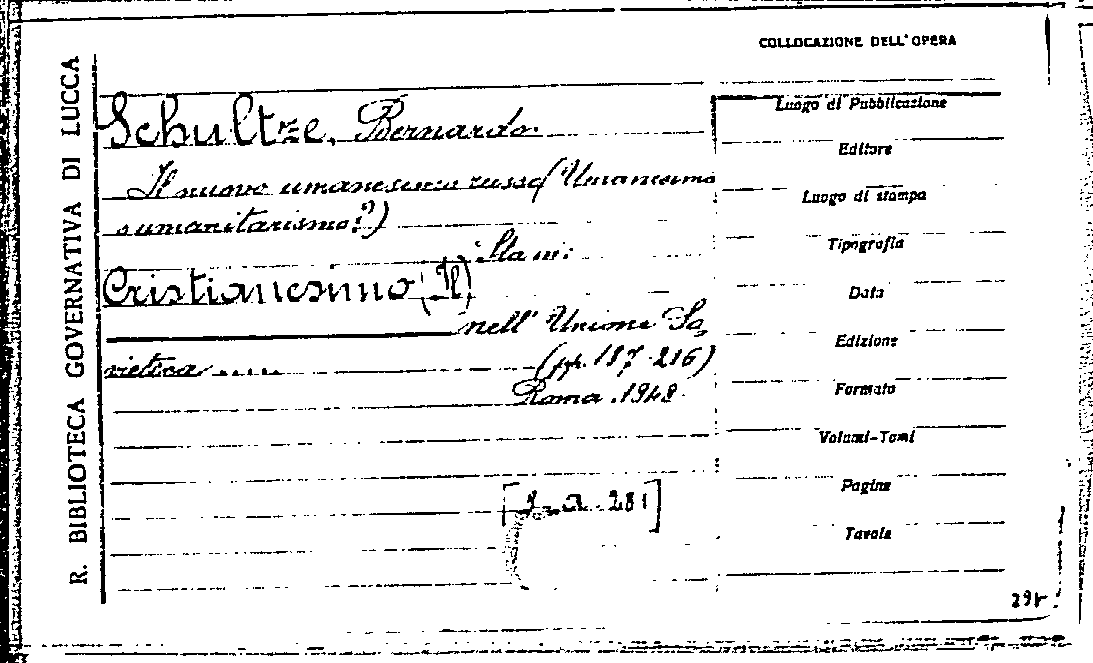 COLLOCAZIONE DELL'OPERA
R. BIBLIOTECA GOVERNATIVA DI LUCCA
Schultze, Bernardo.
Il nuovo umanesimo russo (Umanesimo
umanitarismo?)
Sta in:
Cristianesimo (Il)
nell' Unione So,
vietica .....
(pp. 187-216)
Roma. 1948.
Luogo di Pubblicazione
Editore
Luogo di stampa
Tipografia
Data
Edizione
Formato
Volumi-Tomi
Pagine
Tavole